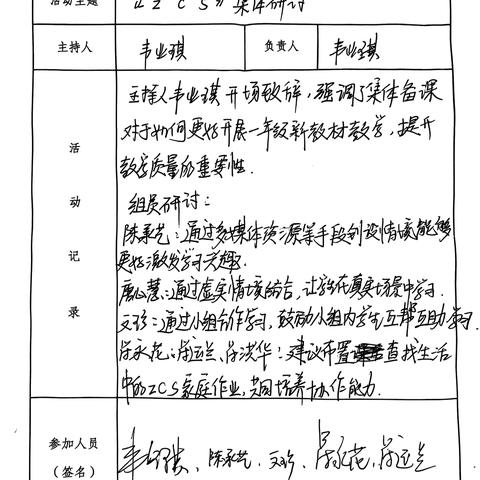 活动主题 《ZCS》集体研讨
主持人 韦业琪 负责人 韦业琪
主持人韦业琪开场致辞，强调了集体备课
对于如何更好开展一年级新教材教学，提升
教学质量的重要性.
组员研讨：
陈采艺：通过多媒体资源等手段创设情境能够
更好激发学习兴趣.
通过虚实情境结合，让学生在真实场景中学习.
文珍：通过小组合作学习，鼓励小组内学生互帮互助学习.
建议布置查找生活
中的ZCS家庭作业，共同培养协作能力.
活动记录
参加人员
（签名）
陈采艺. 文珍.